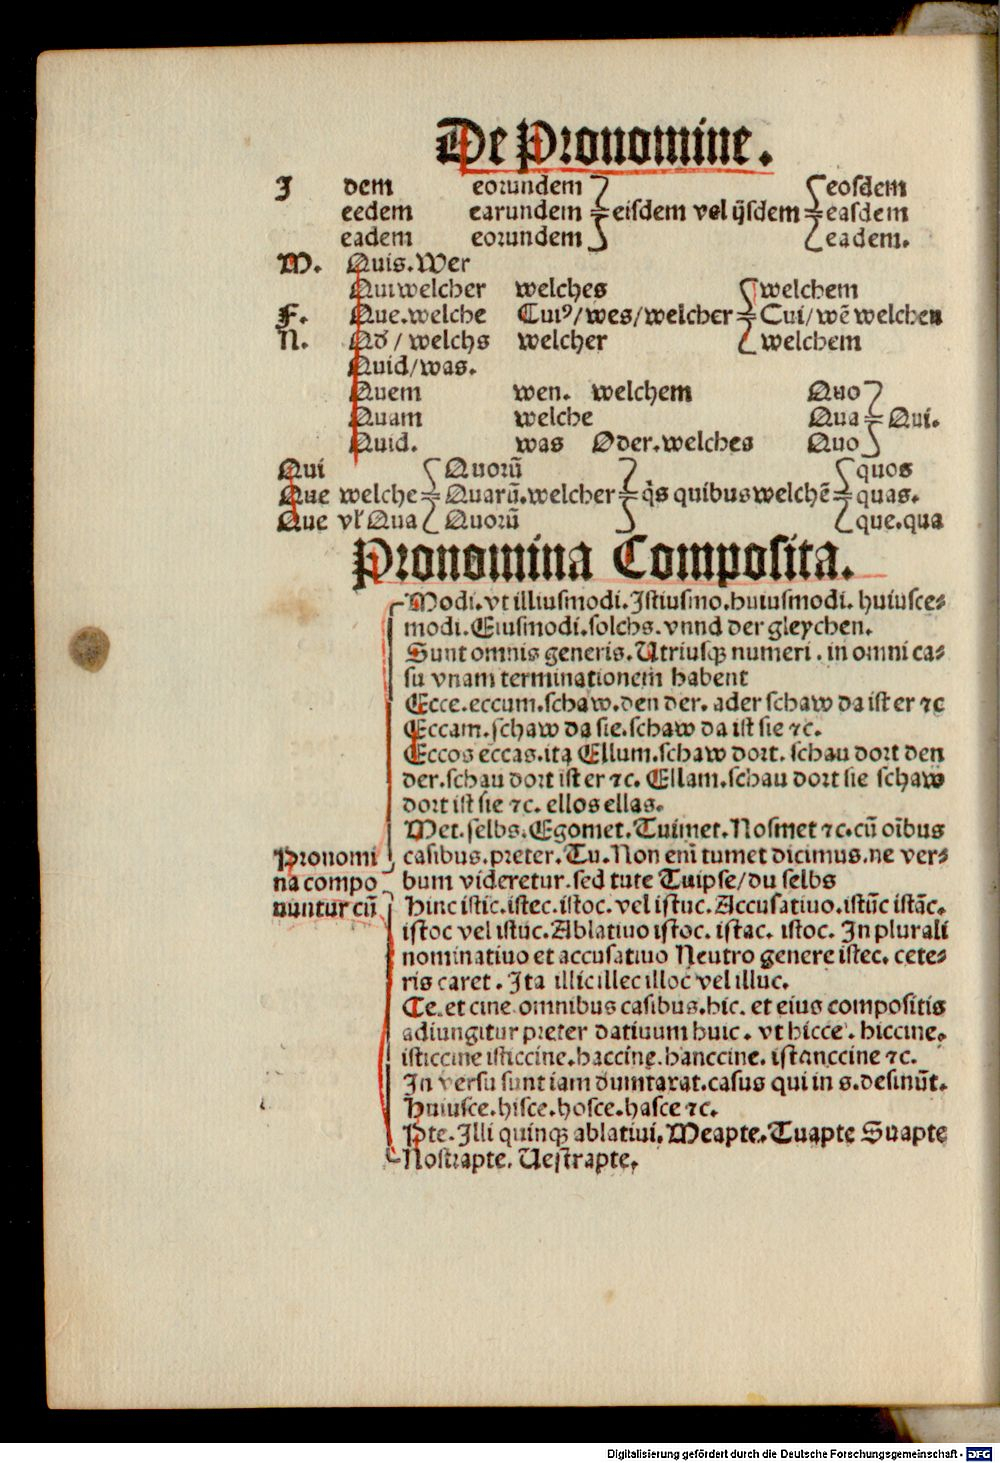 De Pronomine.
I dem eorundem eisdem vel ijsdem eosdem
eedem earundem easdem
eadem eorundem eadem.
M. Quis. Wer
Qui welcher welches welchem
F. Que. welche Cuiꝰ/wes/welcher Cui/wē welchen
N. Qd/ welchs welcher welchem
Quid/was.
Quem wen. welchem Quo
Quam welche Qua Qui.
Quid. was Oder. welches Quo
Qui Quorū quos
Que welche Quarū. welcher q̄s quibus welchē quas.
Que vl' Qua Quorū que. qua
Pronomina Composita.
Modi. vt illiusmodi. Istiusmo. huiusmodi. huiusce-
modi. Eiusmodi. solchs. vnnd der gleychen.
Sunt omnis generis. Utriusqꝫ numeri. in omni ca-
su vnam terminationem habent
Ecce. eccum. schaw. den der. ader schaw da ist er ⁊c
Eccam. schaw da sie. schaw da ist sie ⁊c.
Eccos eccas. ita Ellum. schaw dort. schau dort den
der. schau dort ist er ⁊c. Ellam. schau dort sie schaw
dort ist sie ⁊c. ellos ellas.
Met. selbs. Egomet. Tuimet. Nosmet ⁊c. cū oībus
Pronomi casibus. preter. Tu. Non enī tumet dicimus. ne ver-
na compo bum videretur. sed tute Tuipse/du selbs
nuntur cū Hinc istic. istec. istoc. vel istuc. Accusatiuo. istūc istāc.
istoc vel istuc. Ablatiuo istoc. istac. istoc. In plurali
nominatiuo et accusatiuo Neutro genere istec. cete-
ris caret. Ita illic illec illoc vel illuc.
Ce. et cine omnibus casibus. hic. et eius compositis
adiungitur preter datiuum huic. vt hicce. hiccine.
isticcine isticcine. haccine. hanccine. istanccine ⁊c.
In versu sunt iam dumtaxat. casus qui in s. desinūt.
Huiusce. hisce. hosce. hasce ⁊c.
Pte. Illi quinqꝫ ablatiui. Meapte. Tuapte Suapte
Nostrapte. Uestrapte.
Digitalisierung gefördert durch die Deutsche Forschungsgemeinschaft - DFG